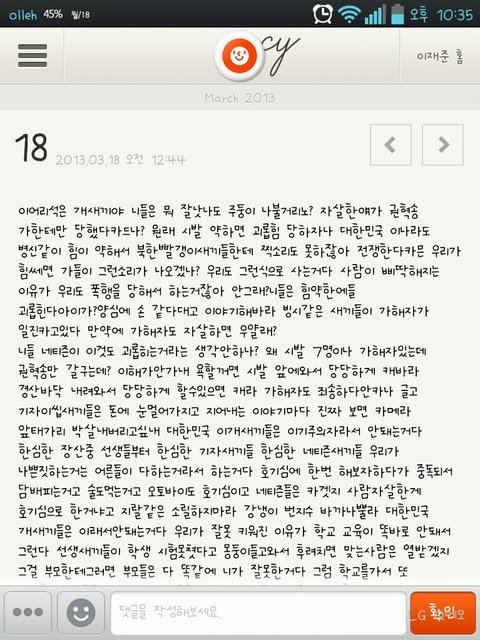 olleh 45% 월/18 오후 10:35
cy 이재준 홈
March 2013
18 2013.03.18 오전 12:44
이어리석은 개새끼야 니들은 뭐 잘낫나도 주둥이 나불거리노? 자살한얘가 권혁송
가한테만 당했다카드나? 원래 시발 약하면 괴롭힘 당하자나 대한민국 이나라도
병신같이 힘이 약해서 북한빨갱이새끼들한테 찍소리도 못하잖아 전쟁한다카믄 우리가
힘쎄면 가들이 그런소리가 나오겠나? 우리도 그런식으로 사는거다 사람이 삐딱해지는
이유가 우리도 폭행을 당해서 하는거잖아 안그래?니들은 힘약한에들
괴롭힌다아이가?양심에 손 갖다대고 이야기해바라 빙시같은 새끼들이 가해자가
일진카고있다 만약에 가해자도 자살하면 우얄래?
니들 네티즌이 이것도 괴롭히는거라는 생각안하나? 왜 시발 7명이나 가해자있는데
권혁송만 갈구는데? 이해가안가내 욕할꺼면 시발 앞에와서 당당하게 캐바라
경산바닥 내려와서 당당하게 할수있으면 캐라 가해자도 죄송하다안카나 글고
기자이씹새끼들은 돈에 눈멀어가지고 지어내는 이야기마다 진짜 보면 카메라
앞태가리 박살내버리고싶내 대한민국 이개새끼들은 이기주의자라서 안돼는거다
한심한 장산중 선생들부터 한심한 기자새끼들 한심한 네티즌새끼들 우리가
나쁜짓하는거는 어른들이 다하는거라서 하는거다 호기심에 한번 해보자하다가 중독되서
담배피는거고 술도먹는거고 오토바이도 호기심이고 네티즌들은 카겟지 사람자살한게
호기심으로 한거냐고 지랄같은 소릴하지마라 강냉이 번지수 바까나뿔라 대한민국
개새끼들은 이래서안돼는거다 우리가 잘못 키워진 이유가 학교 교육이 똑바로 안돼서
그런다 선생새끼들이 학생 시험못쳤다고 몽둥이들고와서 후려치면 맞는사람은 열받겠지
그걸 부모한테그러면 부모들은 다 똑같에 니가 잘못한거다 그럼 학교를가서 또
댓글을 작성해보세요. 확인